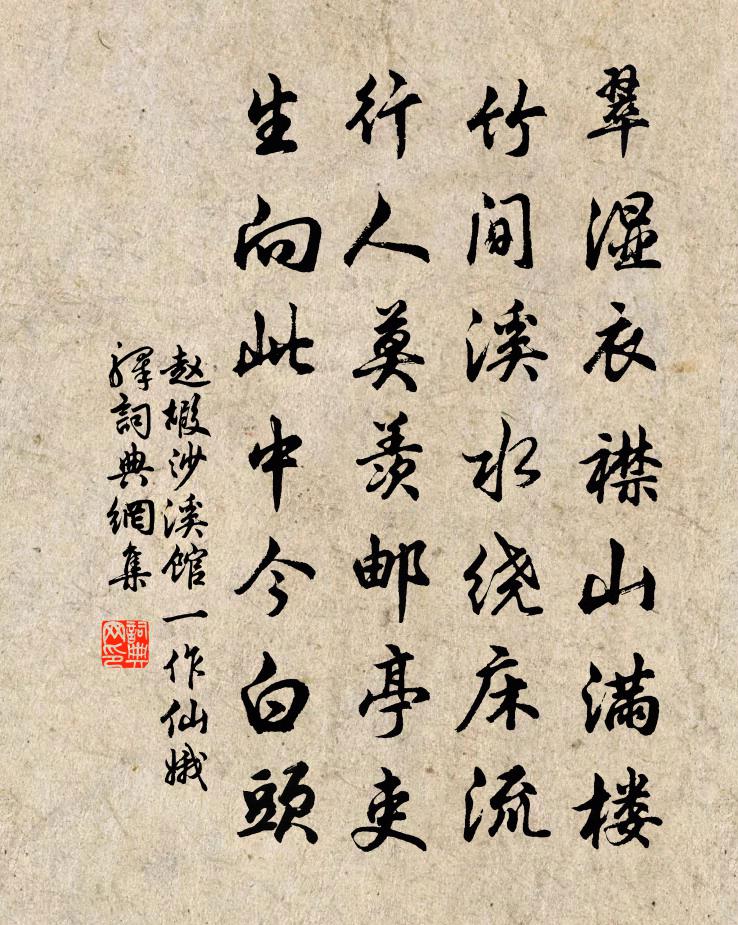 翠湿衣襟山满楼
竹间溪水绕床流
行人莫羡邮亭吏
生向此中今白頭
赵椵沙溪馆一作仙娥
驛詞典網集
詞典
网印